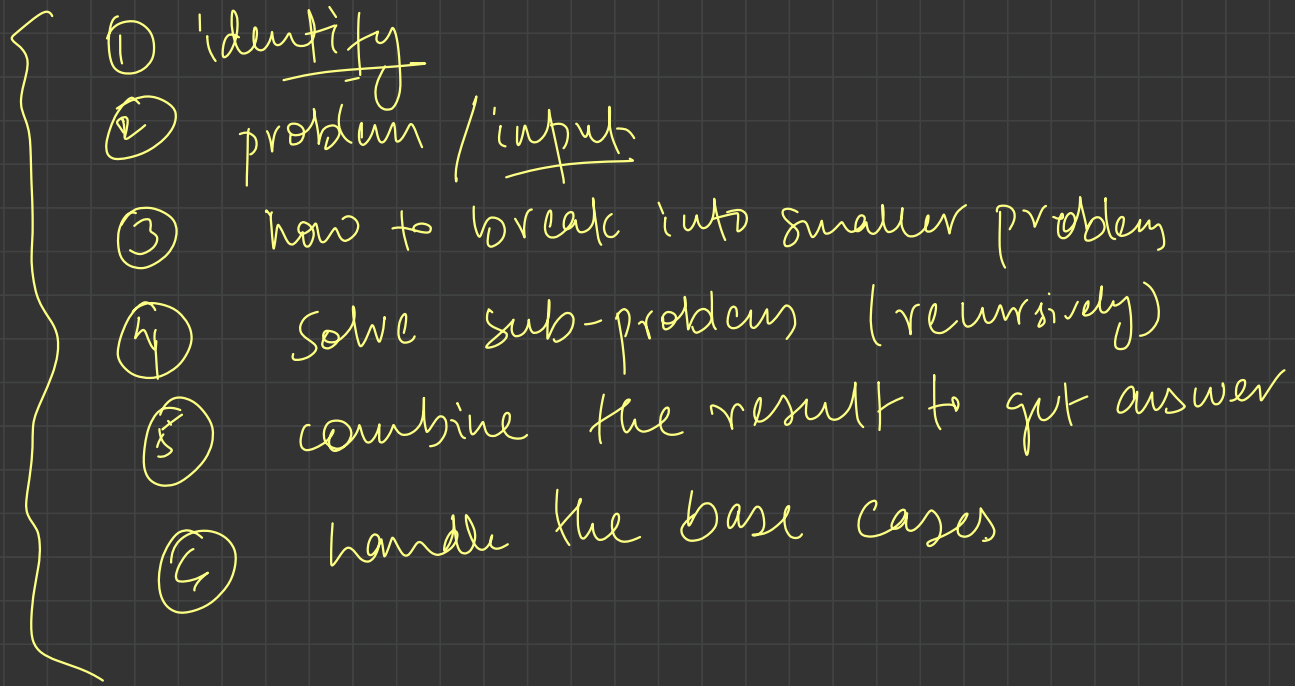 ① identify
② problem / input
③ how to break into smaller problems
④ solve sub-problems (recursively)
⑤ combine the result to get answer
⑥ handle the base cases